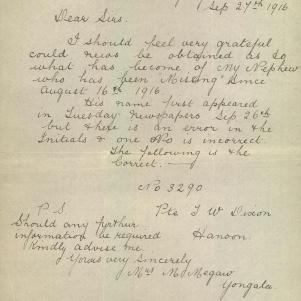 Sep 27th 1916
Dear Sirs.
I should feel very grateful
could news be obtained as to
what has become of my Nephew
who has been "Missing" since
August 16th 1916.
His name first appeared
in Tuesday Newspapers Sep 26th
but there is an error in the
Initials & one No is incorrect
The following is the
Correct.
No 3290
P.S. Pte T W Dixon
Should any further
information be required Hanson.
Kindly advise me.
Yours very Sincerely
Mrs M. Megaw
Yongala